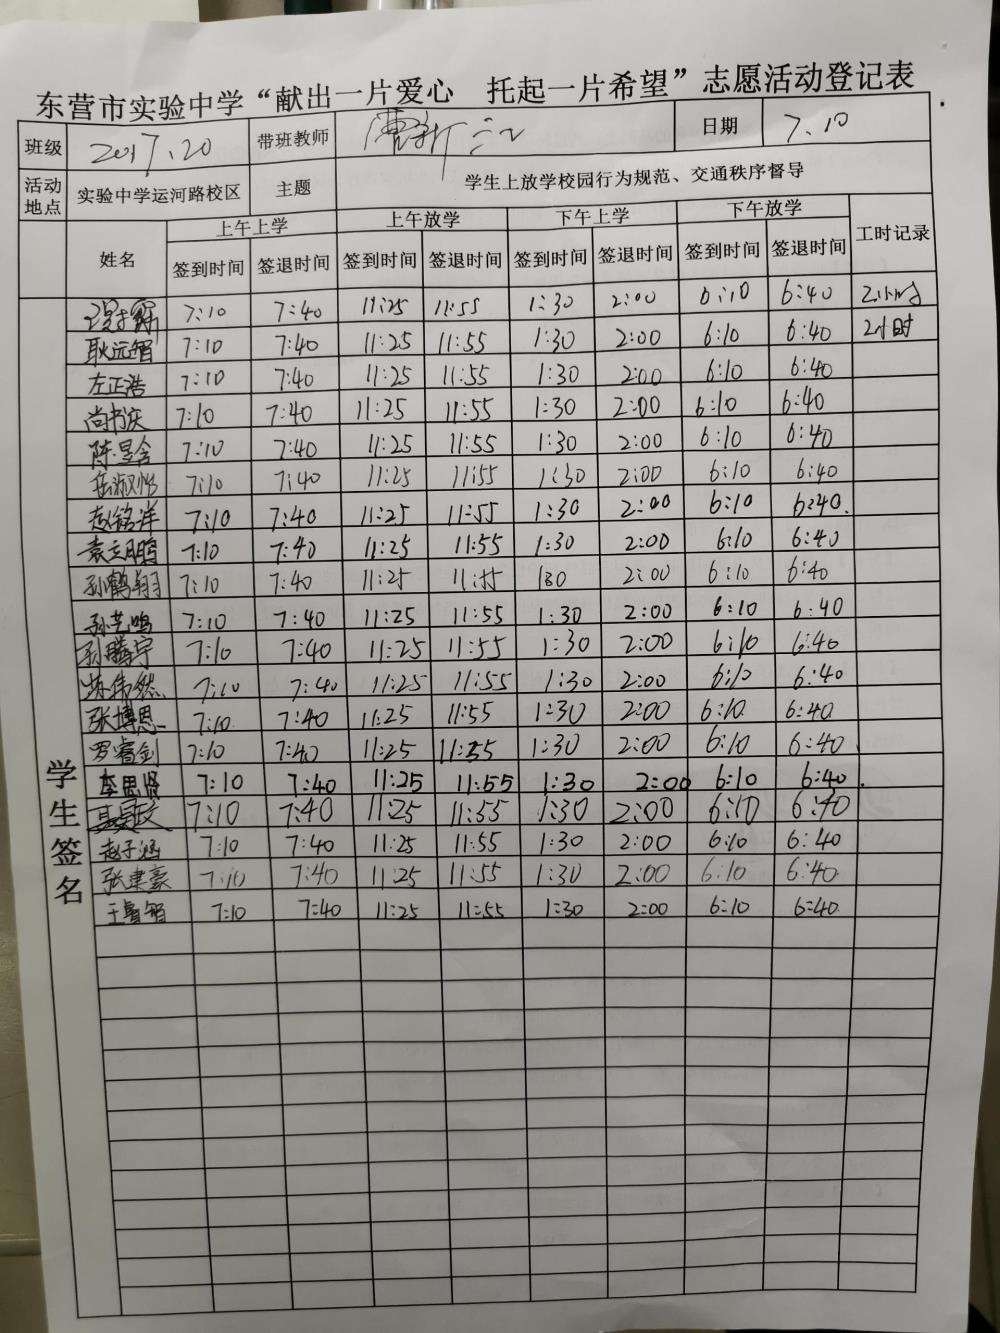 东营市实验中学“献出一片爱心 托起一片希望”志愿活动登记表
班级 2017.20 带班教师 日期 7.10
活动地点 实验中学运河路校区 主题 学生上放学校园行为规范、交通秩序督导
姓名 上午上学 上午放学 下午上学 下午放学 工时记录
签到时间 签退时间 签到时间 签退时间 签到时间 签退时间 签到时间 签退时间
7:10 7:40 11:25 11:55 1:30 2:00 6:10 6:40 2小时
耿远智 7:10 7:40 11:25 11:55 1:30 2:00 6:10 6:40 2小时
左正浩 7:10 7:40 11:25 11:55 1:30 2:00 6:10 6:40
尚书庆 7:10 7:40 11:25 11:55 1:30 2:00 6:10 6:40
陈昱含 7:10 7:40 11:25 11:55 1:30 2:00 6:10 6:40
7:10 7:40 11:25 11:55 1:30 2:00 6:10 6:40
赵铭洋 7:10 7:40 11:25 11:55 1:30 2:00 6:10 6:40.
袁立鹏 7:10 7:40 11:25 11:55 1:30 2:00 6:10 6:40
孙鹤翔 7:10 7:40 11:25 11:55 1:30 2:00 6:10 6:40
孙艺鸣 7:10 7:40 11:25 11:55 1:30 2:00 6:10 6:40
孙腾宇 7:10 7:40 11:25 11:55 1:30 2:00 6:10 6:40
7:10 7:40 11:25 11:55 1:30 2:00 6:10 6:40
张博思 7:10 7:40 11:25 11:55 1:30 2:00 6:10 6:40
罗睿剑 7:10 7:40 11:25 11:55 1:30 2:00 6:10 6:40
李思贤 7:10 7:40 11:25 11:55 1:30 2:00 6:10 6:40
7:10 7:40 11:25 11:55 1:30 2:00 6:10 6:40
赵子涵 7:10 7:40 11:25 11:55 1:30 2:00 6:10 6:40
张建豪 7:10 7:40 11:25 11:55 1:30 2:00 6:10 6:40
王睿智 7:10 7:40 11:25 11:55 1:30 2:00 6:10 6:40
学生签名